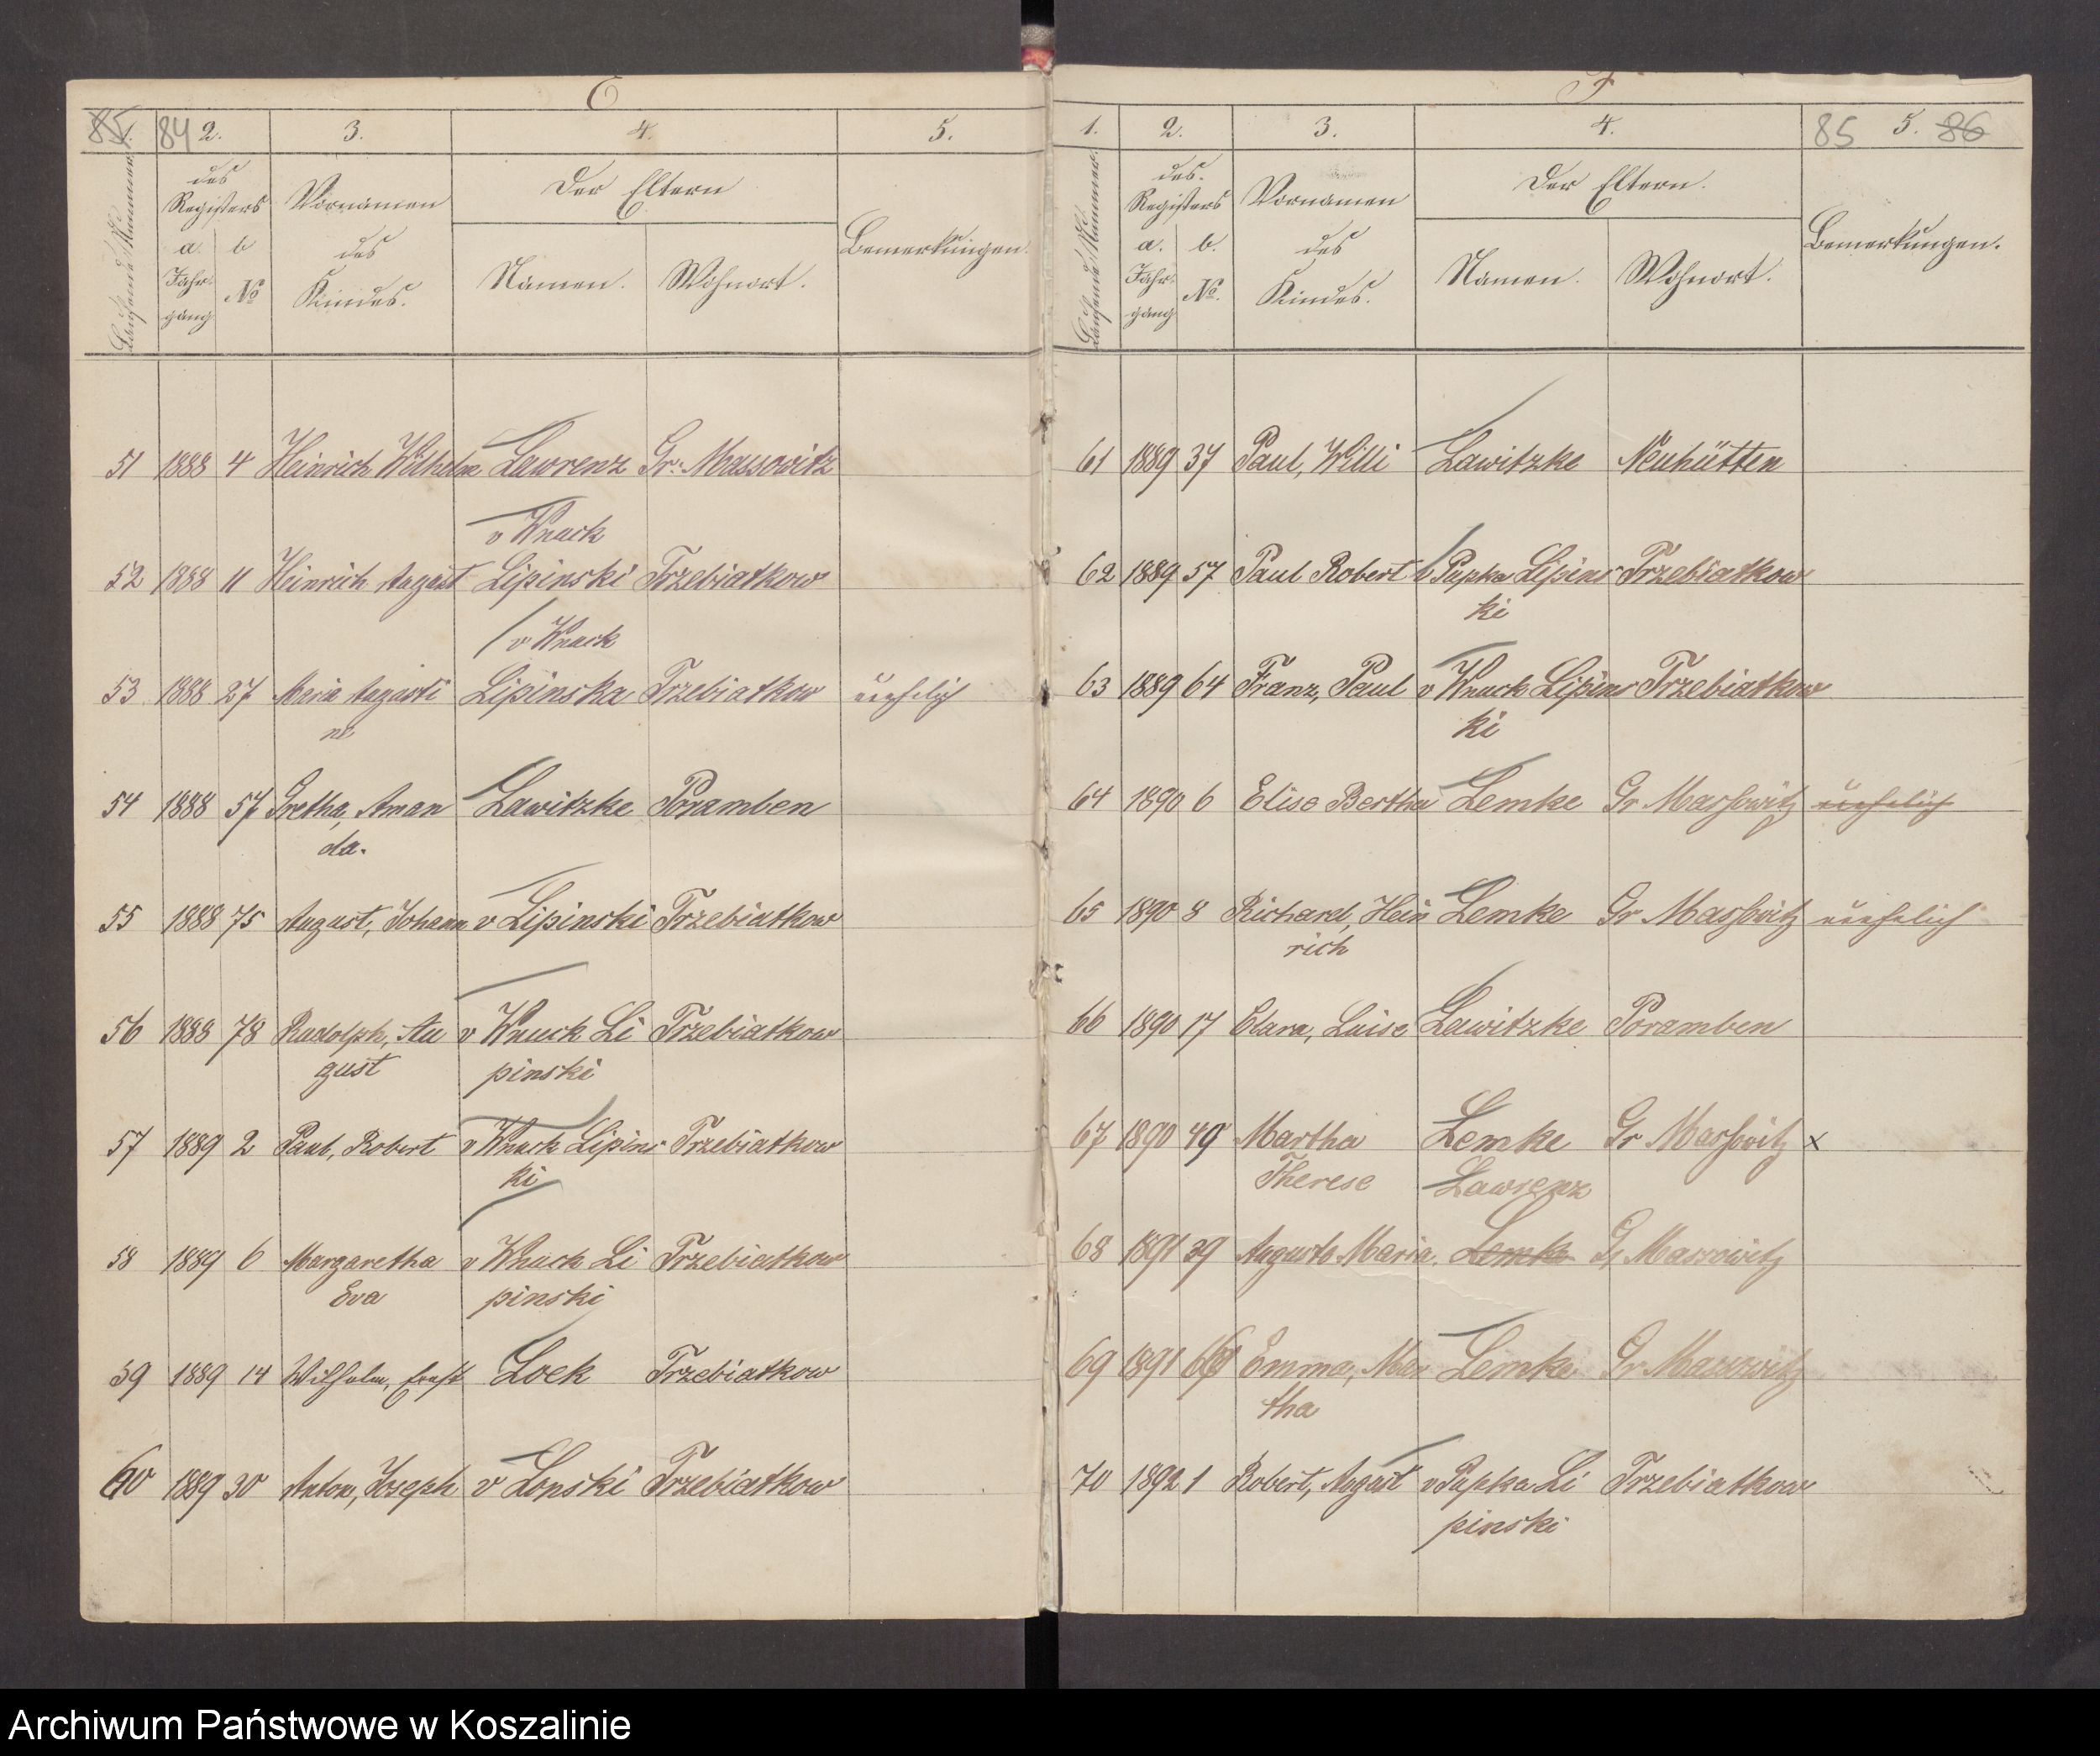 C
85 1. 84 2. 3. 4. 5.
Laufende Nummer
des Registers
a. Jahrgang
b №
Vornamen des Kindes.
Der Eltern
Namen. Wohnort.
Bemerkungen.
51 1888 4 Heinrich Wilhelm Lawrenz Gr. Massowitz
v Wnuck
52 1888 11 Heinrich August Lipinski Trzebiatkow
v Wnuck
53 1888 27 Maria Augusti Lipinska Trzebiatkow unehelich
ne
54 1888 57 Gretha, Aman Lawitzke Poramben
da.
55 1888 75 August, Johann v Lipinski Trzebiatkow
56 1888 78 Rudolph, Au v Wnuck Li Trzebiatkow
gust pinski
57 1889 2 Paul, Robert v Wnuck Lipins Trzebiatkow
ki
58 1889 6 Margaretha v Wnuck Li Trzebiatkow
Eva pinski
59 1889 14 Wilhelm, Ernst Loek Trzebiatkow
60 1889 30 Anton, Joseph v Lonski Trzebiatkow
1. 2. 3. 4. 85 5. 86
Laufende Nummer.
des. Registers
a. Jahrgang
b. №.
Vornamen des Kindes.
Der Eltern.
Namen. Wohnort.
Bemerkungen.
61 1889 37 Paul, Willi Lawitzke Neuhütten
62 1889 57 Paul Robert v Pupka Lipins Trzebiatkow
ki
63 1889 64 Franz, Paul v Wnuck Lipins Trzebiatkow
ki
64 1890 6 Elise Bertha Lemke Gr Massowitz unehelich
65 1890 8 Richard, Hein Lemke Gr Massowitz unehelich
rich
66 1890 17 Clara, Luise Lawitzke Poramben
67 1890 49 Martha Lemke Gr Massowitz x
Therese Lawrenz
68 1891 39 Auguste Maria. Lemke Gr Massowitz
69 1891 Emma, Mar Lemke Gr Massowitz
tha
70 1892 1 Robert, August v Pupka Li Trzebiatkow
pinski
Archiwum Państwowe w Koszalinie